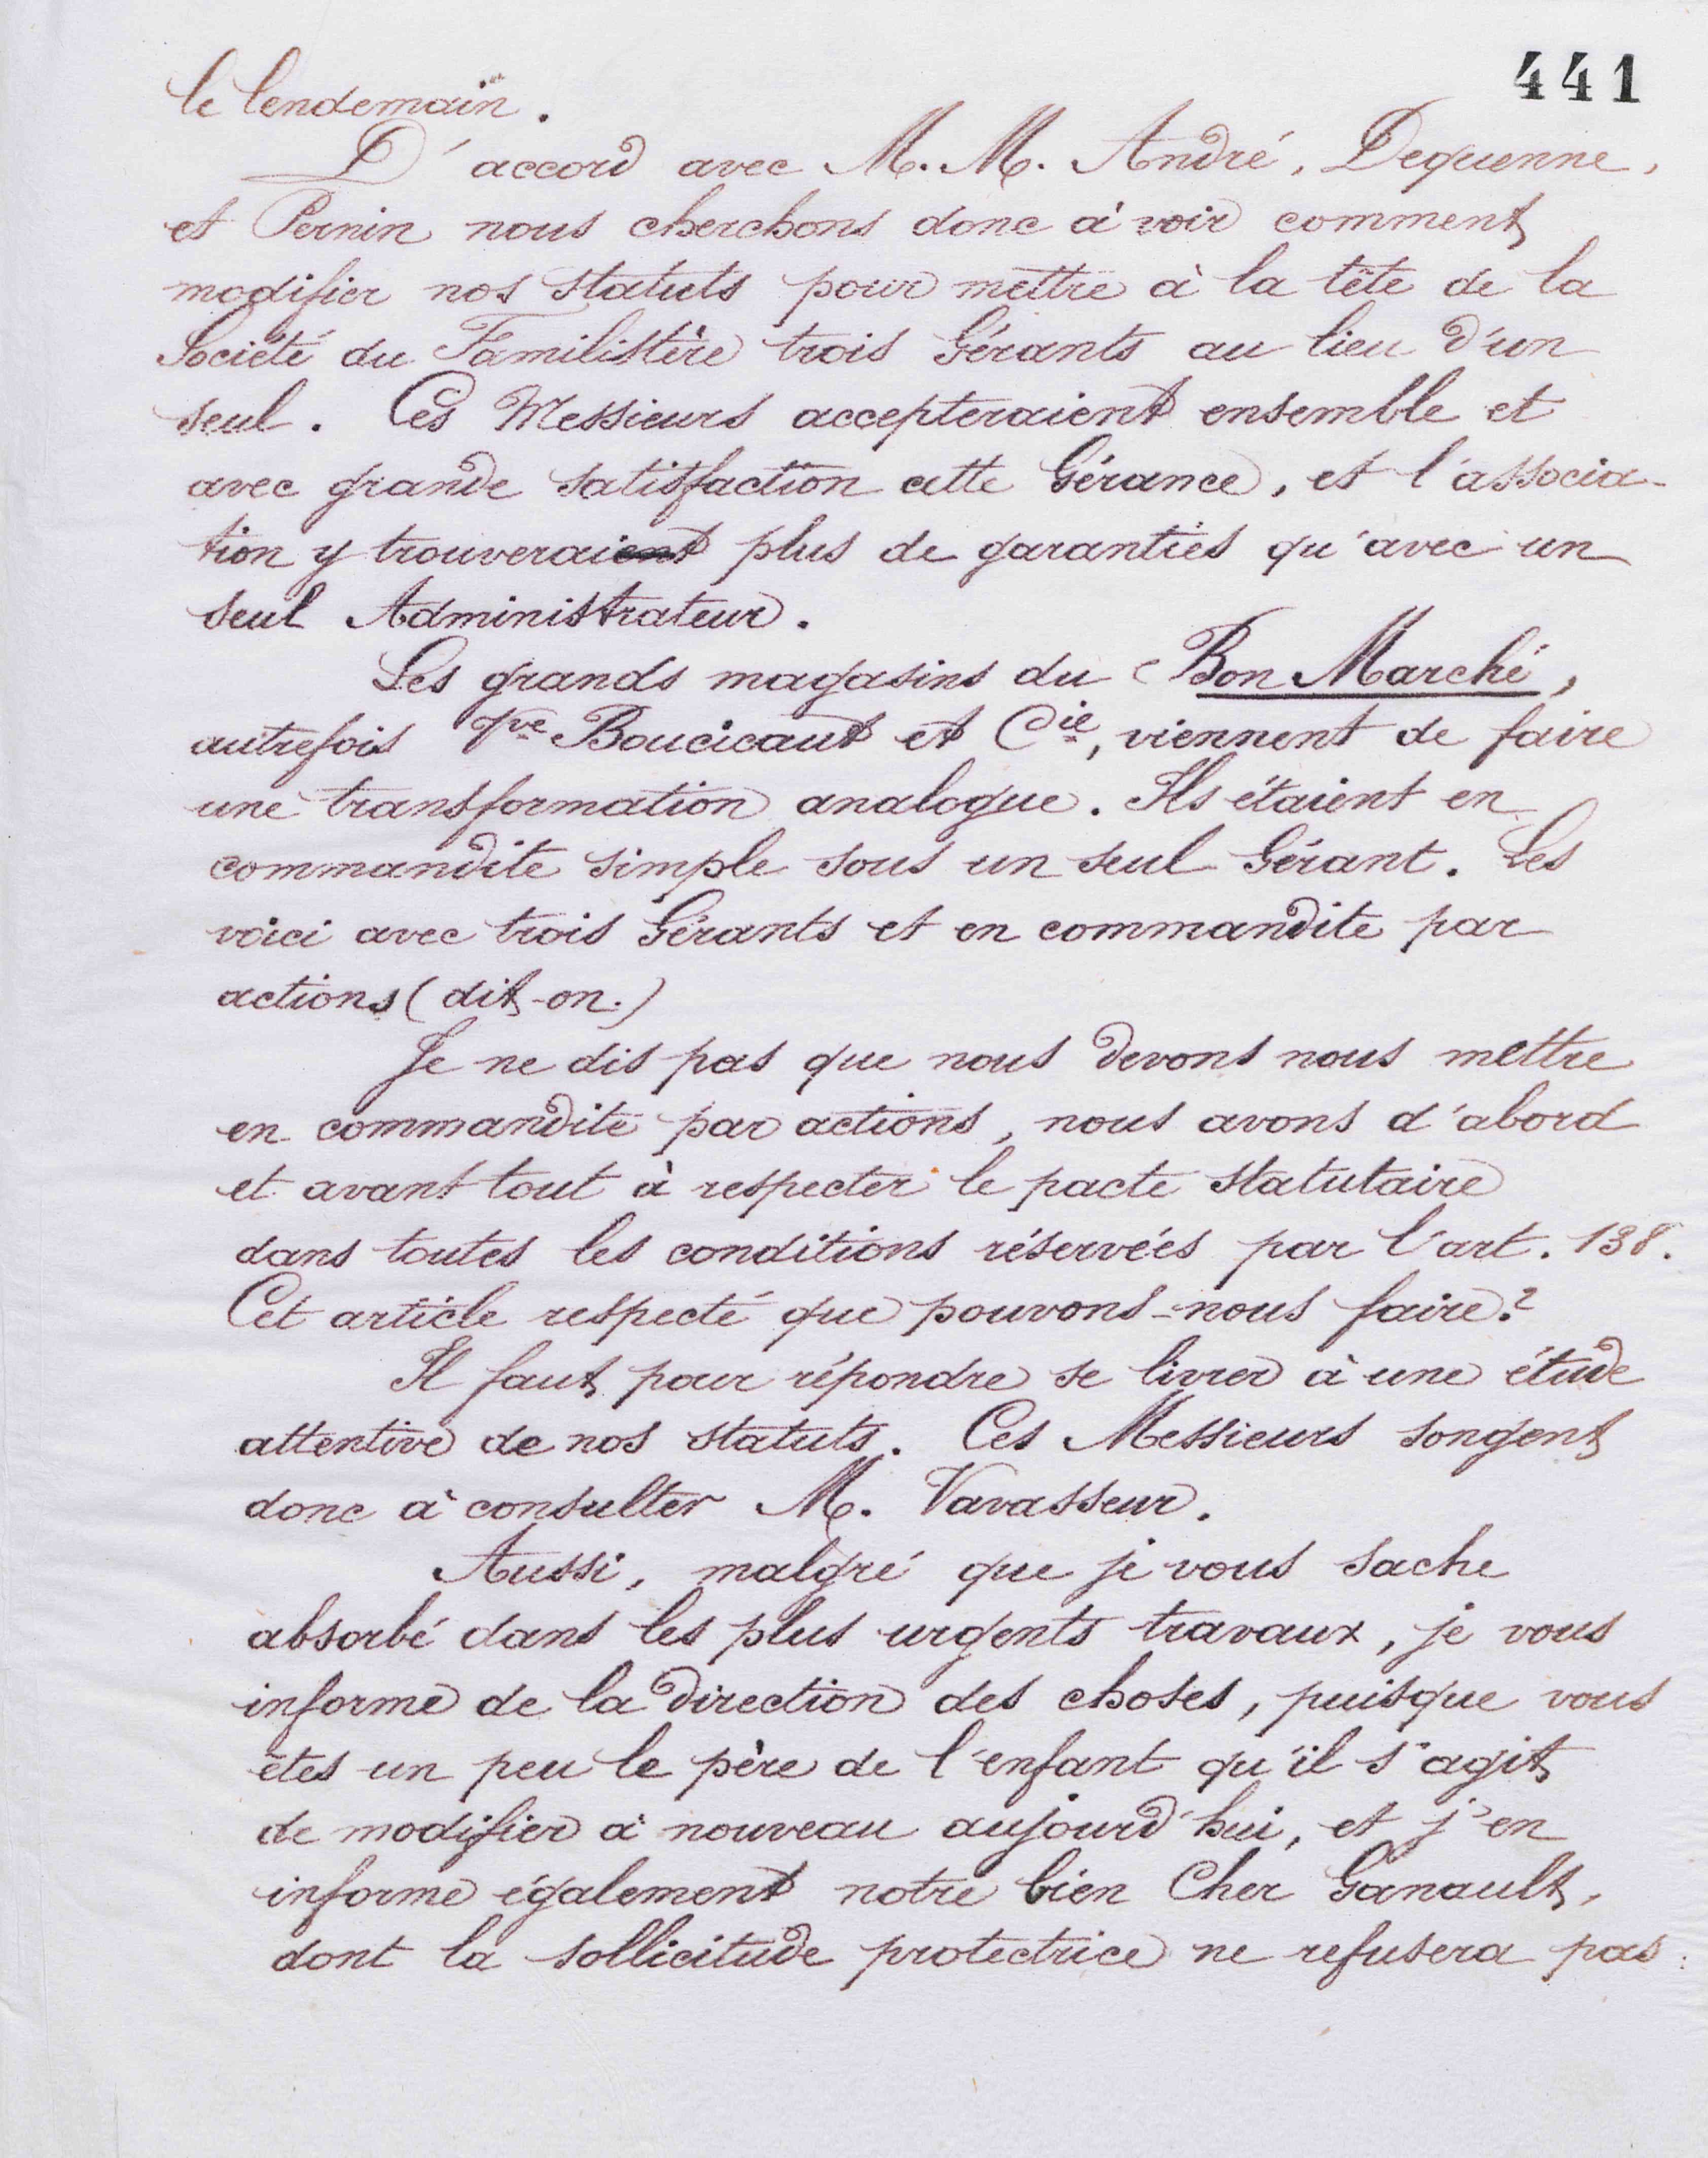 441
le lendemain.
D'accord avec M. M. André, Dequenne,
et Pernin nous cherchons donc à voir comment
modifier nos statuts pour mettre à la tête de la
Société du Familistère trois Gérants au lieu d'un
seul. Ces Messieurs accepteraient ensemble et
avec grande satisfaction cette Gérance, et l'associa-
tion y trouveraient plus de garanties qu'avec un
seul Administrateur.
Les grands magasins du Bon Marché,
autrefois Vve Boucicaut et Cie, viennent de faire
une transformation analogue. Ils étaient en
commandite simple sous un seul Gérant. Les
voici avec trois Gérants et en commandite par
actions (dit-on.)
Je ne dis pas que nous devons nous mettre
en commandite par actions, nous avons d'abord
et avant tout à respecter le pacte statutaire
dans toutes les conditions réservées par l'art. 138.
Cet article respecté que pouvons-nous faire?
Il faut pour répondre se livrer à une étude
attentive de nos statuts. Ces Messieurs songent
donc à consulter M. Vavasseur.
Aussi, malgré que je vous sache
absorbé dans les plus urgents travaux, je vous
informe de la direction des choses, puisque vous
êtes un peu le père de l'enfant qu'il s'agit
de modifier à nouveau aujourd'hui, et j'en
informe également notre bien Cher Ganault,
dont la sollicitude protectrice ne refusera pas